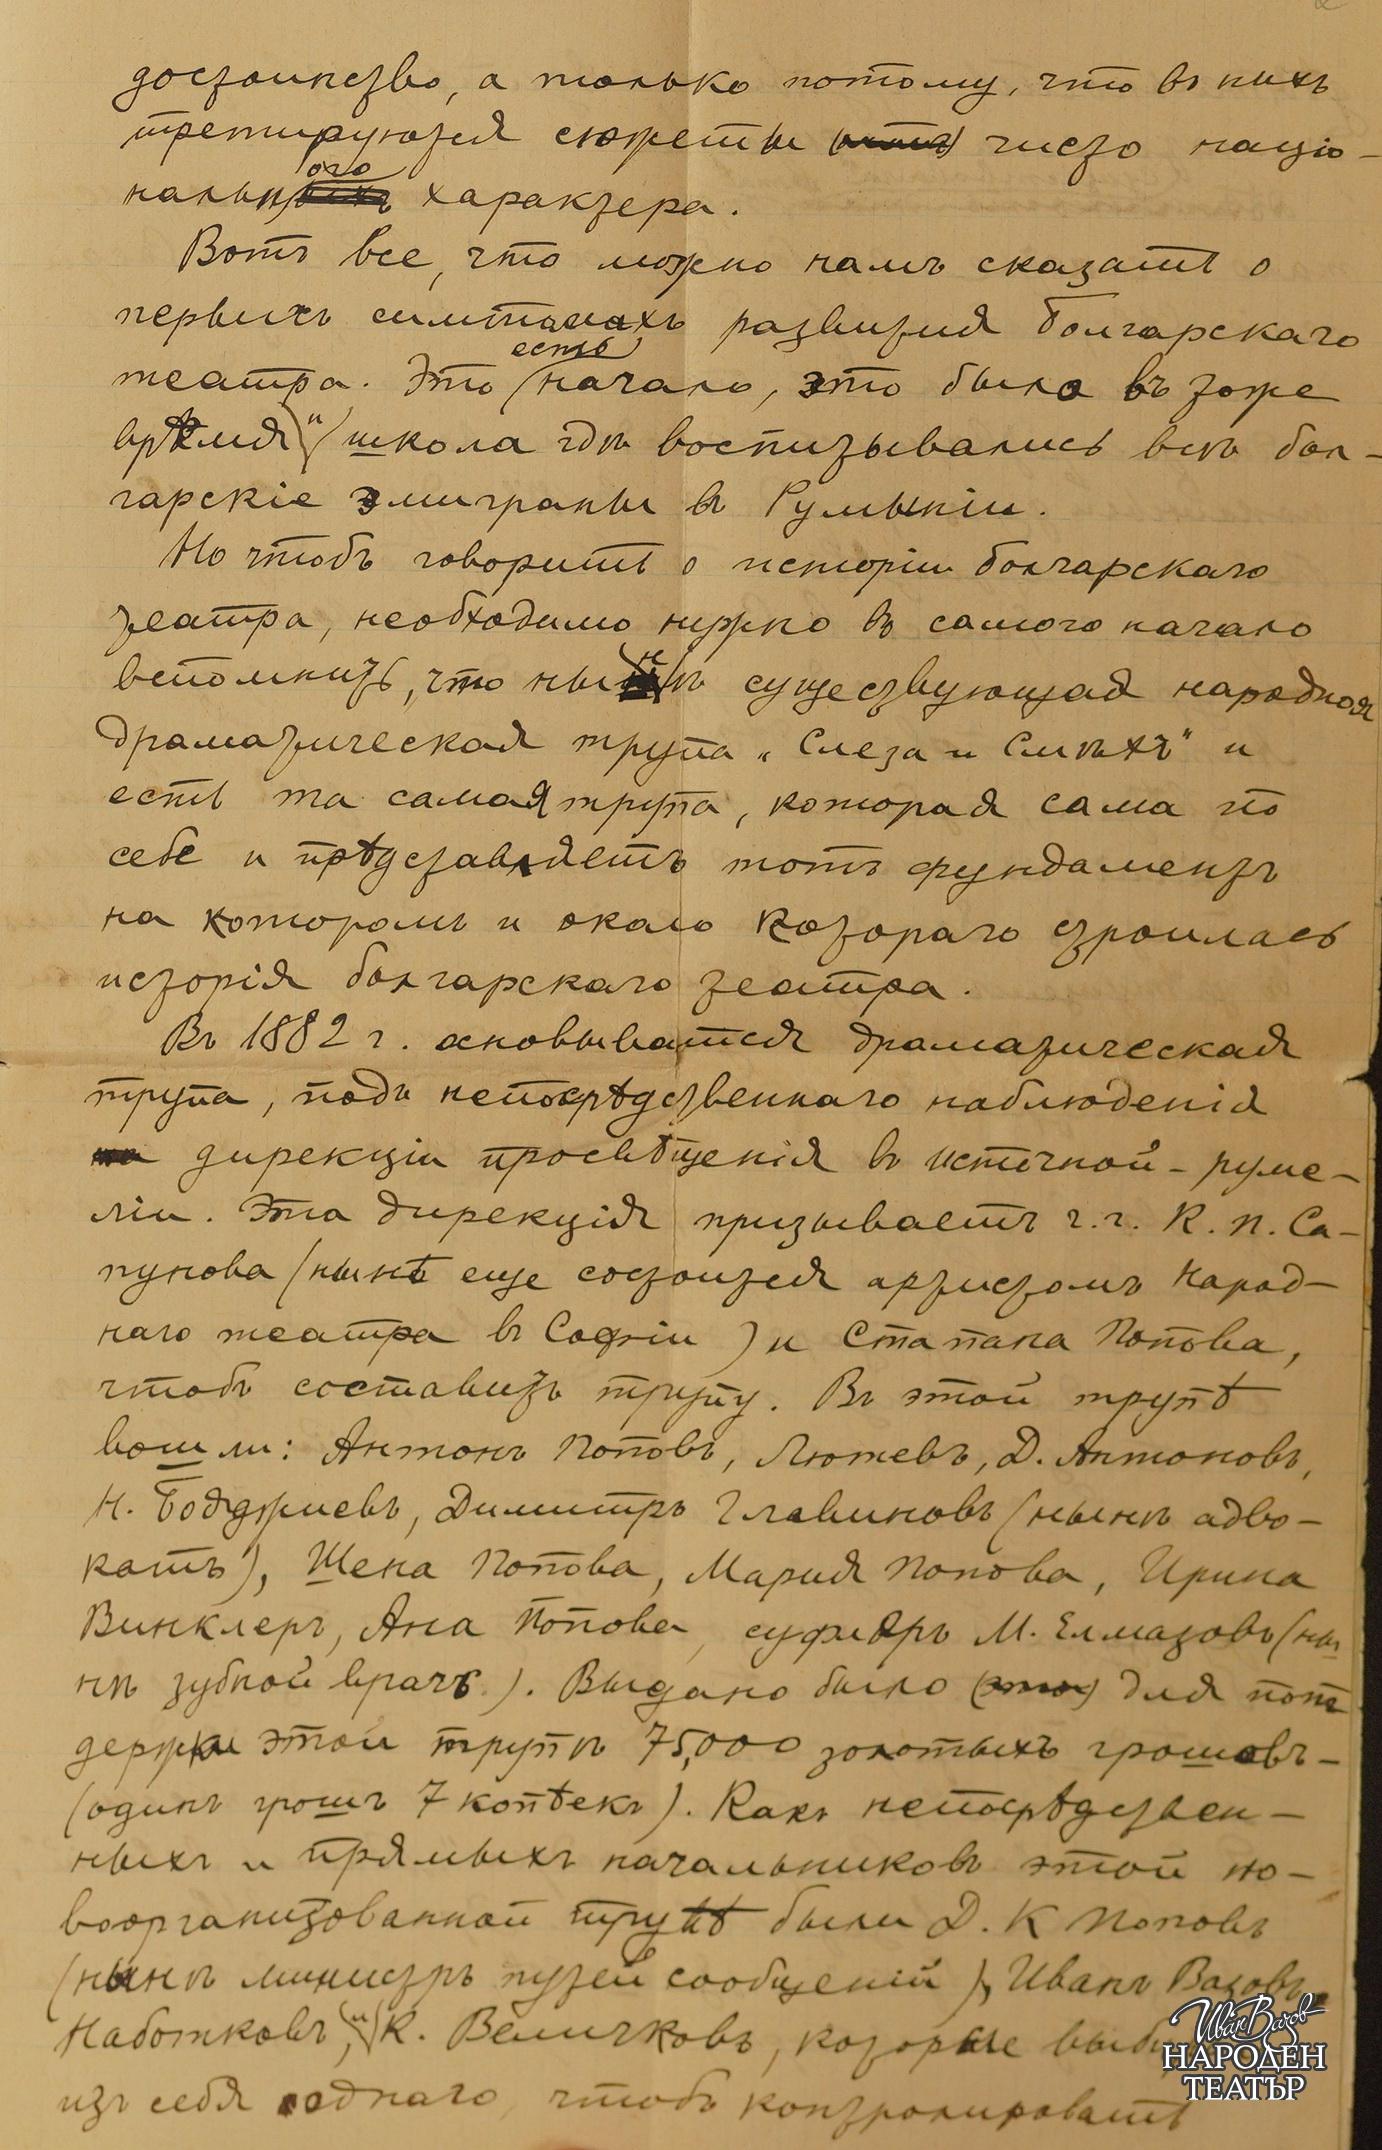 достоинство, а только потому, что въ нихъ
третируются сюжеты чисто націо-
нальнаго характера.
Вотъ все, что можно намъ сказать о
первыхъ симтомахъ развитія болгарскаго
театра. Это есть начало, это было въ тоже
врѣмя и школа гдѣ воспитывались всѣ бол-
гарскіе эмигранты въ Румыніи.
Но чтобъ говорить о исторіи болгарскаго
театра, необходимо нужно въ самого начало
вспомнить, что нынѣ существующая народная
драматическая трупа „Слеза и Смѣхъ" и
есть та самая трупа, которая сама по
себе и прѣдставляетъ тотъ фундаментъ
на которомъ и около котораго строилась
исторія болгарскаго театра.
Въ 1882 г. основывается драматическая
трупа, подъ непосрѣдственнаго наблюденія
дирекціи просвѣщенія въ источной-руме-
ліи. Эта дирекція призываетъ г.г. К. П. Са-
пунова (нынѣ еще состоится артистомъ Народ-
наго театра въ Софіи) и Стапана Попова,
чтобъ составить трупу. Въ этой трупѣ
вошли: Антонъ Поповъ, Лютевъ, Д. Антоновъ,
Н. Бодджиевъ, Димитръ Главиновъ (нынѣ адво-
катъ), Шена Попова, Мария Попова, Ирина
Винклеръ, Ана Попова, суфлёръ М. Елмазовъ (ны-
нѣ зубной врачъ). Выдано было для под
держки этой трупѣ 75,000 золотыхъ грошовъ-
(одинъ грошъ 7 копѣекъ). Какъ непосрѣдствен-
ныхъ и прямыхъ начальниковъ этой но-
воорганизованной трупѣ были Д. К Поповъ
(нынѣ министръ путей сообщеній), Иванъ Вазовъ,
Наботковъ, и К. Величковъ, которые
изъ себя однаго, чтобъ контролировать
Иван Вазов
НАРОДЕН
ТЕАТЪР